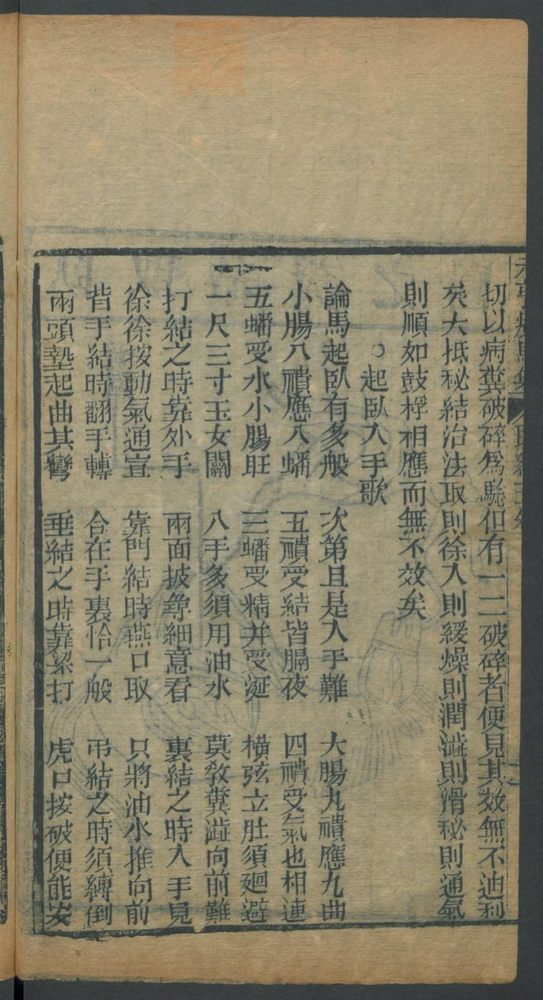 切以病糞破碎爲驗但有一二破碎者便見其效無不迪利
矣大抵秘結治法取則徐入則緩燥則潤澁則滑秘則通氣
則順如鼓桴相應而無不效矣
○起臥入手歌
論馬起臥有多般 次第且是入手難 大腸九䙡應九曲
小腸八䙡應八蟠 五䙡受結皆膈夜 四䙡受氣也相連
五蟠受水小腸旺 三蟠受精并受涎 橫弦立肚須廻避
一尺三寸玉女關 入手多須用油水 莫敎糞澁向前難
打結之時靠外手 兩面披尋細意看 裏結之時入手見
徐徐按動氣通宣 靠門結時燕口取 只將油水推向前
背手結時翻手轉 合在手裏恰一般 弔結之時須縛倒
兩頭墊起曲其彎 垂結之時靠 打 虎口按破便能安